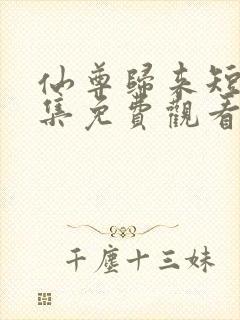 仙尊歸來短
集免費觀看
千塵十三妹